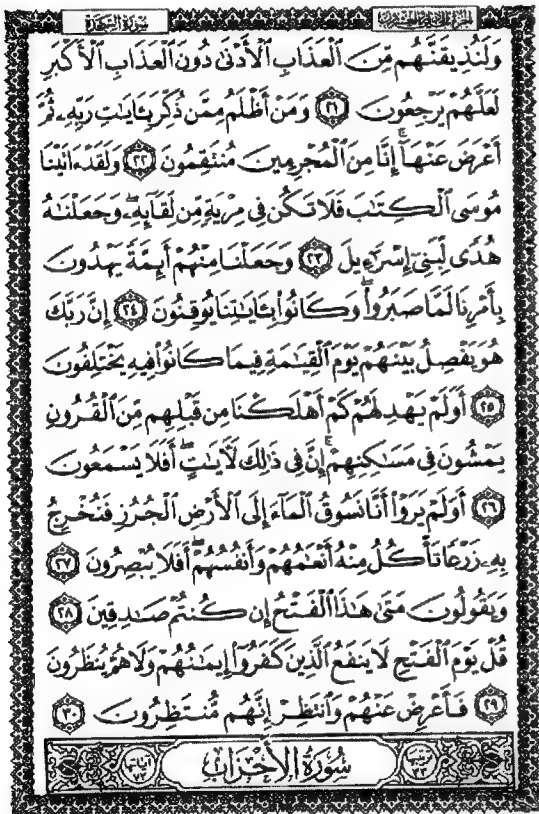 سُورَةُ السَّجْدَةِ
وَلَنُذِيقَنَّهُم مِّنَ ٱلْعَذَابِ ٱلْأَدْنَىٰ دُونَ ٱلْعَذَابِ ٱلْأَكْبَرِ
لَعَلَّهُمْ يَرْجِعُونَ ٢١ وَمَنْ أَظْلَمُ مِمَّن ذُكِّرَ بِـَٔايَـٰتِ رَبِّهِۦ ثُمَّ
أَعْرَضَ عَنْهَآ ۚ إِنَّا مِنَ ٱلْمُجْرِمِينَ مُنتَقِمُونَ ٢٢ وَلَقَدْ ءَاتَيْنَا
مُوسَى ٱلْكِتَـٰبَ فَلَا تَكُن فِى مِرْيَةٍ مِّن لِّقَآئِهِۦ ۖ وَجَعَلْنَـٰهُ
هُدًى لِّبَنِىٓ إِسْرَٰٓءِيلَ ٢٣ وَجَعَلْنَا مِنْهُمْ أَئِمَّةً يَهْدُونَ
بِأَمْرِنَا لَمَّا صَبَرُوا۟ ۖ وَكَانُوا۟ بِـَٔايَـٰتِنَا يُوقِنُونَ ٢٤ إِنَّ رَبَّكَ
هُوَ يَفْصِلُ بَيْنَهُمْ يَوْمَ ٱلْقِيَـٰمَةِ فِيمَا كَانُوا۟ فِيهِ يَخْتَلِفُونَ
٢٥ أَوَلَمْ يَهْدِ لَهُمْ كَمْ أَهْلَكْنَا مِن قَبْلِهِم مِّنَ ٱلْقُرُونِ
يَمْشُونَ فِى مَسَـٰكِنِهِمْ ۚ إِنَّ فِى ذَٰلِكَ لَـَٔايَـٰتٍ ۖ أَفَلَا يَسْمَعُونَ
٢٦ أَوَلَمْ يَرَوْا۟ أَنَّا نَسُوقُ ٱلْمَآءَ إِلَى ٱلْأَرْضِ ٱلْجُرُزِ فَنُخْرِجُ
بِهِۦ زَرْعًا تَأْكُلُ مِنْهُ أَنْعَـٰمُهُمْ وَأَنفُسُهُمْ ۖ أَفَلَا يُبْصِرُونَ ٢٧
وَيَقُولُونَ مَتَىٰ هَـٰذَا ٱلْفَتْحُ إِن كُنتُمْ صَـٰدِقِينَ ٢٨
قُلْ يَوْمَ ٱلْفَتْحِ لَا يَنفَعُ ٱلَّذِينَ كَفَرُوٓا۟ إِيمَـٰنُهُمْ وَلَا هُمْ يُنظَرُونَ
٢٩ فَأَعْرِضْ عَنْهُمْ وَٱنتَظِرْ إِنَّهُم مُّنتَظِرُونَ ٣٠
ترتيبها ٣٣ سُورَةُ الأَحْزَابِ آياتها ٧٣